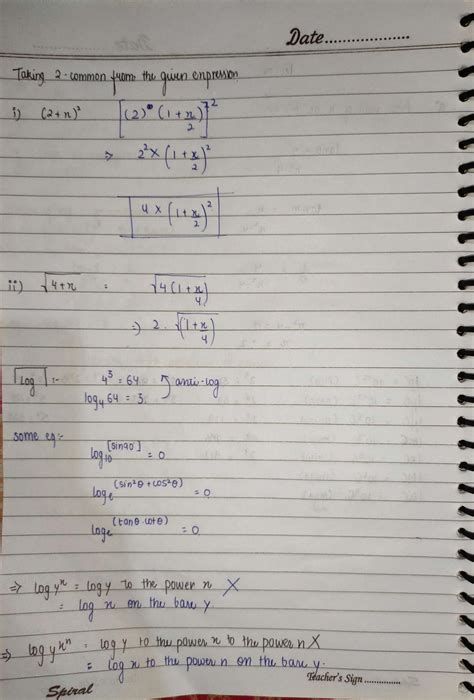 Date....................
Taking 2-common from the given expression
i) (2+x)² [(2)(1+x/2)]²
⇒ 2² × (1+x/2)²
4 × (1+x/2)²
ii) √4+x = √4(1+x/4)
⇒ 2 . √(1+x/4)
log :- 4³ = 64 anti-log
log₄ 64 = 3
some eg:-
log₁₀ [sin90] = 0
logₑ (sin²θ + cos²θ) = 0
logₑ (tanθ . cotθ) = 0
⇒ log yˣ = log y to the power x X
= log x on the base y.
⇒ log y xⁿ = log y to the power x to the power n X
= log x to the power n on the base y.
Teacher's Sign ...............
Spiral